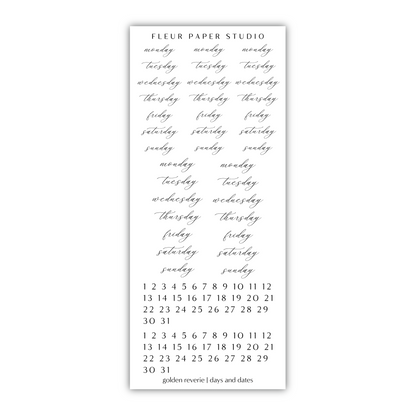 FLEUR PAPER STUDIO
monday monday monday
tuesday tuesday tuesday
wednesday wednesday wednesday
thursday thursday thursday
friday friday friday
saturday saturday saturday
sunday sunday sunday
monday monday
tuesday tuesday
wednesday wednesday
thursday thursday
friday friday
saturday saturday
sunday sunday
1 2 3 4 5 6 7 8 9 10 11 12
13 14 15 16 17 18 19 20 21
22 23 24 25 26 27 28 29
30 31
1 2 3 4 5 6 7 8 9 10 11 12
13 14 15 16 17 18 19 20 21
22 23 24 25 26 27 28 29
30 31
golden reverie | days and dates